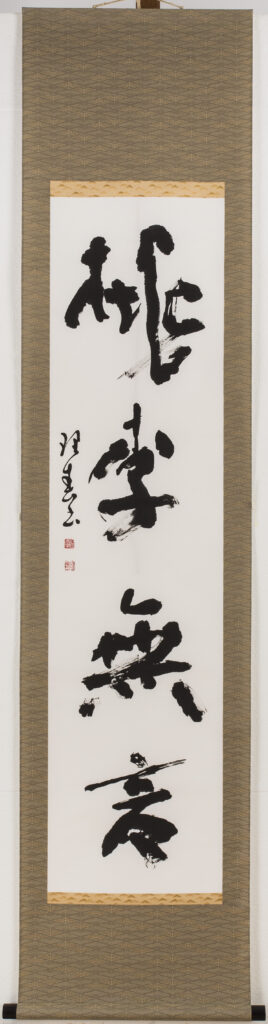 桃李無言